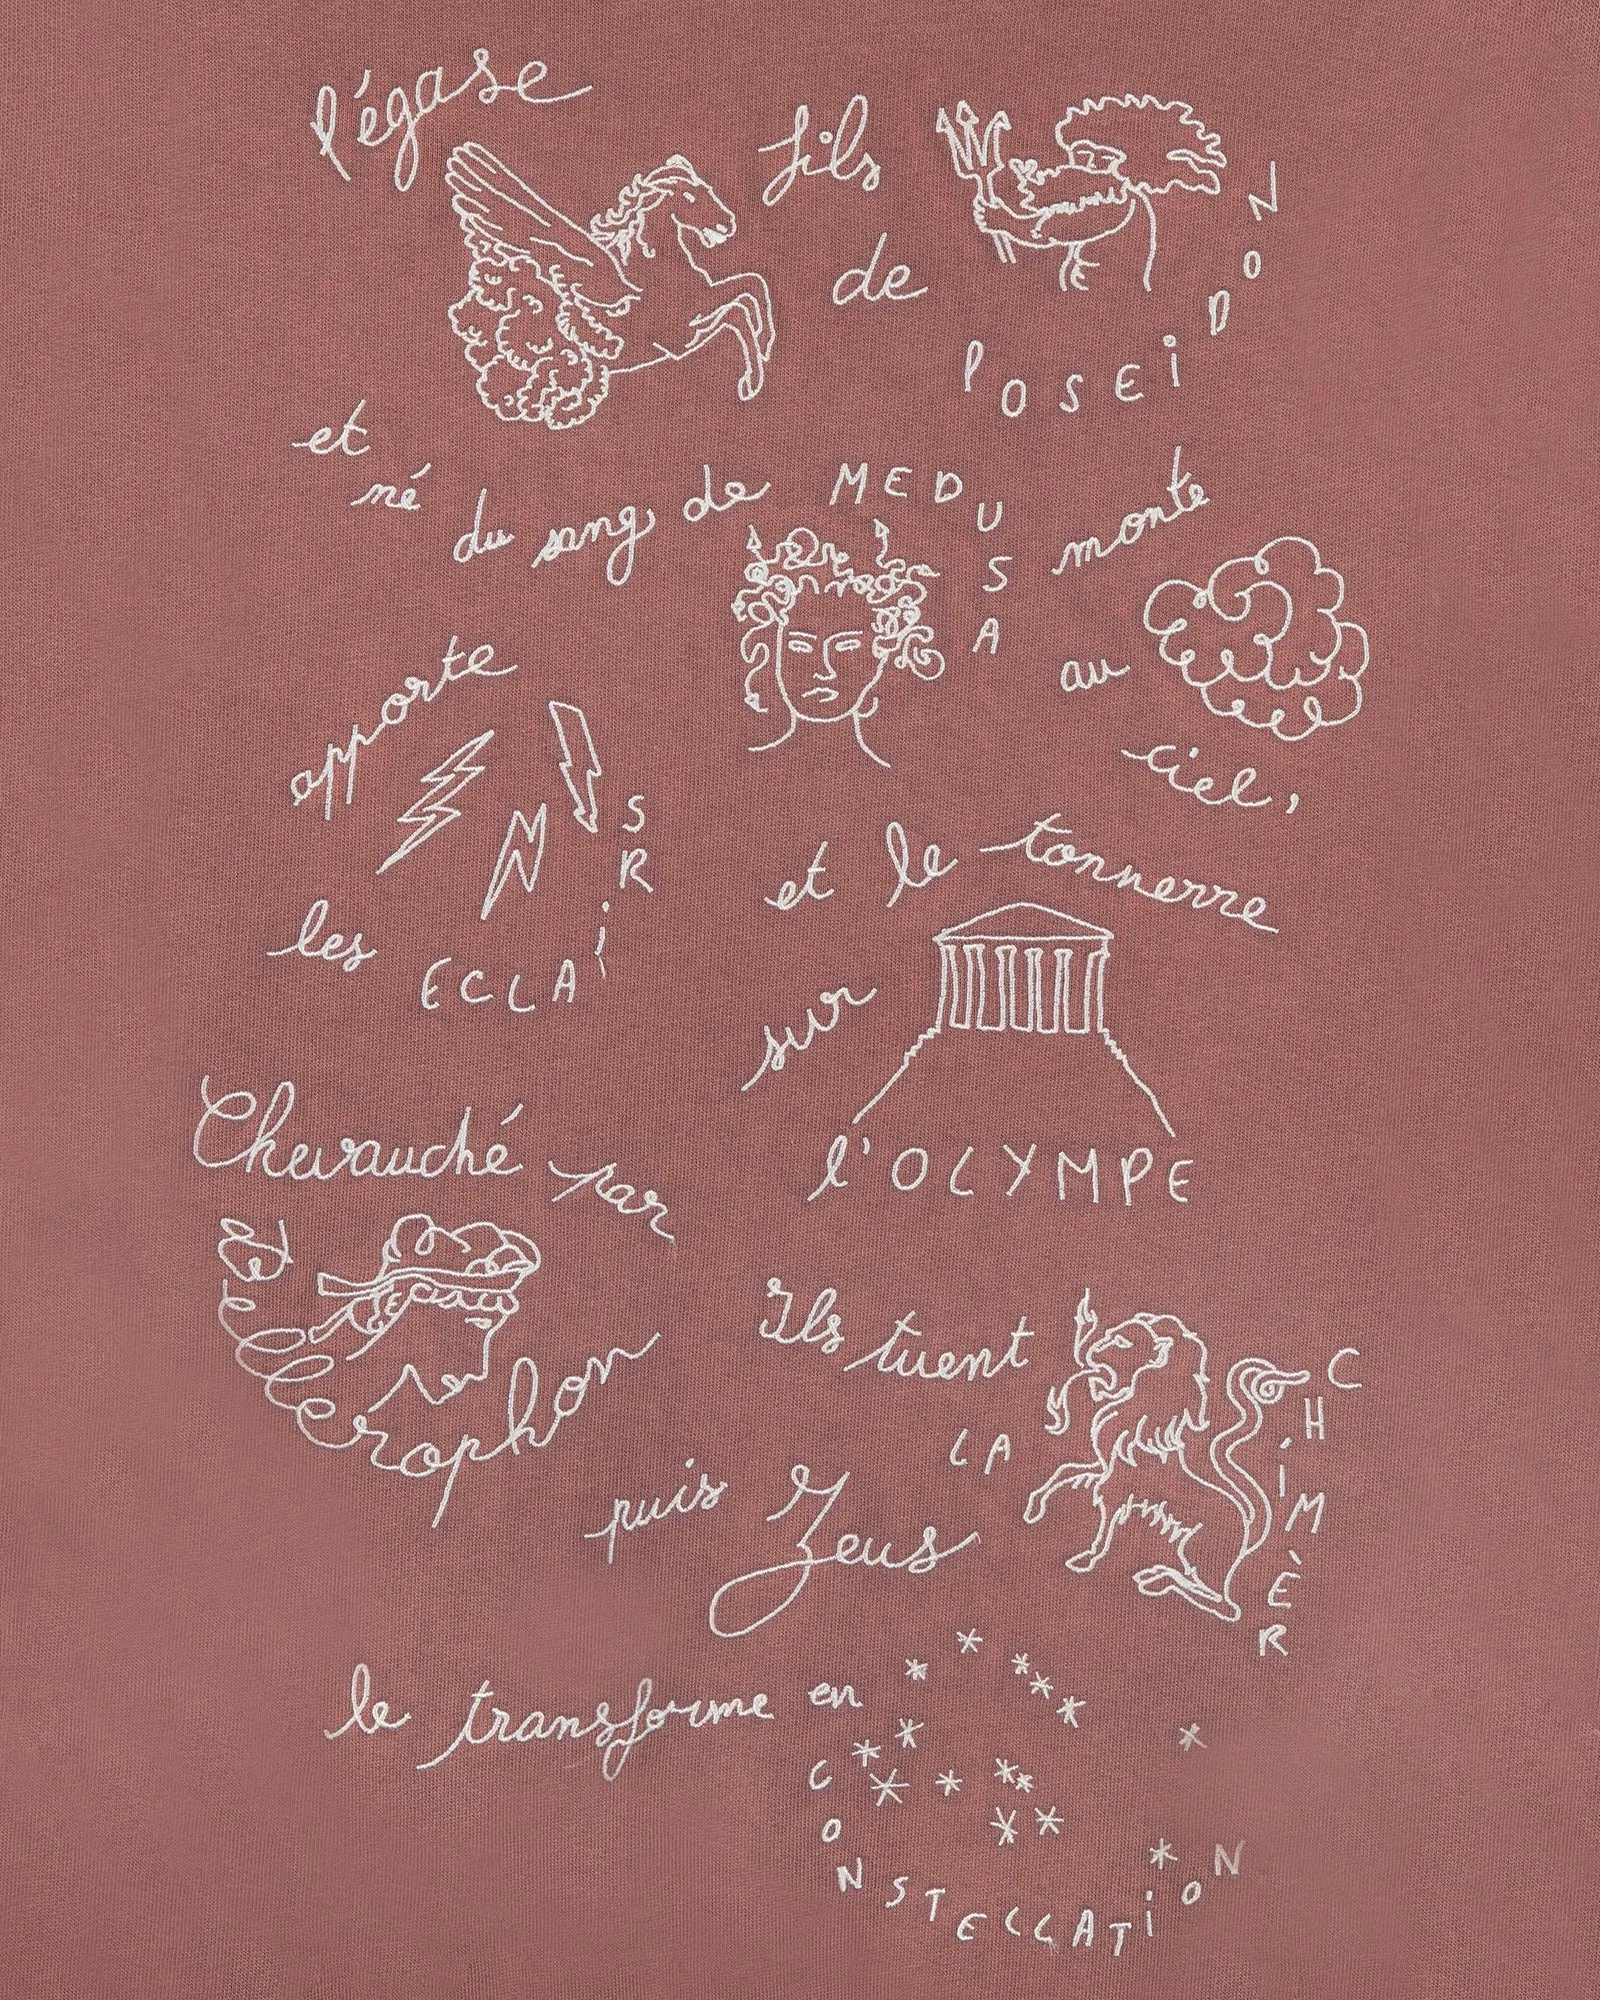 Pégase
fils
de
POSEiDON
et
né
du sang de
MEDUSA
monte
au
ciel,
apporte
les ECLAiRS
et le tonnerre
sur
l'OLYMPE
Chevauché par
Bellerophon
Ils tuent
LA
CHiMÈR
puis Zeus
le transforme en
CONSTELLATiON